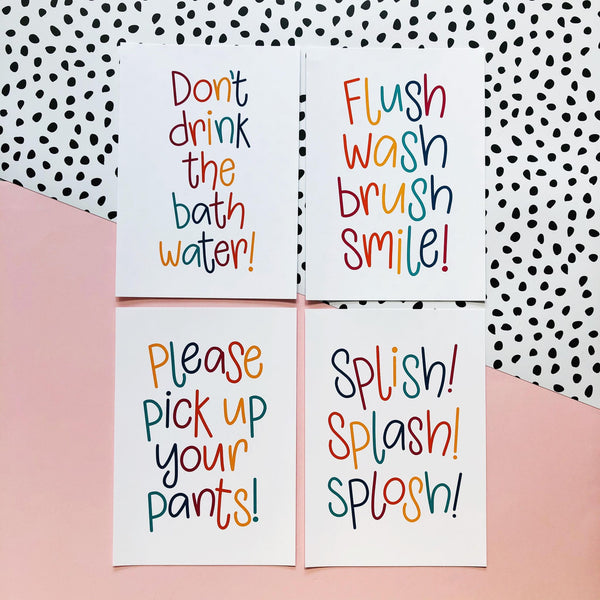 Don't
drink
the
bath
water!
Flush
wash
brush
smile!
Please
pick up
your
pants!
Splish!
Splash!
Splosh!